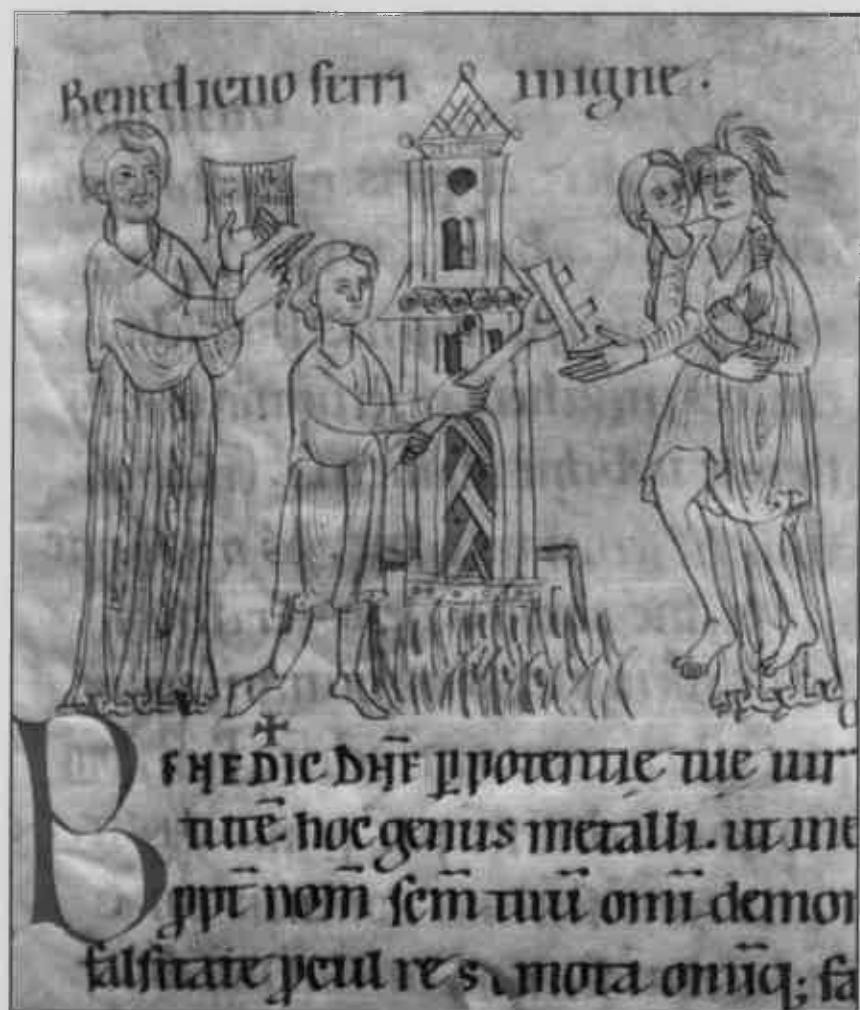 Benedictio ferri in igne.
BENEDIC DÑE ꝑ potentie tue uir
tutē hoc genus metalli. ut in e
ꝓpt̄ nom̄ scm̄ tuū om̄i demon
falsitate ꝓcul remota om̄iq; fa